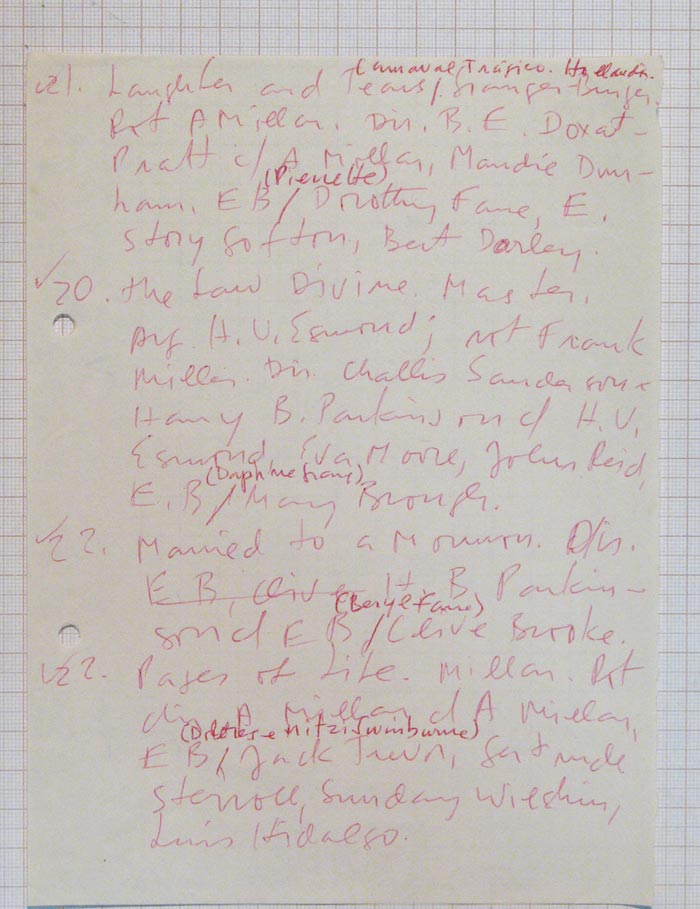 Carnaval Trágico. Hollandia.
21. Laughter and Tears/Granger-Binger.
Prt A Millar. Dir. B. E. Doxat-
Pratt c/ A Millar, Maudie Dun-
(Pierrette)
ham, E B/ Dorothy Fane, E.
Story Gofton, Bert Darley.
20. The Law Divine. Master.
Arg. H. V. Esmond; not Frank
Miller. Dir. Challis Sanderson-
Harry B. Parkinson c/ H. V.
Esmond, Eva Moore, John Reid,
(Daphne Grey)
E. B/ Mary Brough.
22. Married to a Mormon. Dir.
E B, Clive H. B. Parkin-
(Beryl Fane)
son c/ E B/Clive Brooke.
22. Pages of Life. Millar. Prt
dir A Millar c/ A Millar,
(Dolores e Mitzi Swinburne)
E B/ Jack Trevor, Gertrude
Sterroll, Sunday Wilshin,
Luis Hidalgo.